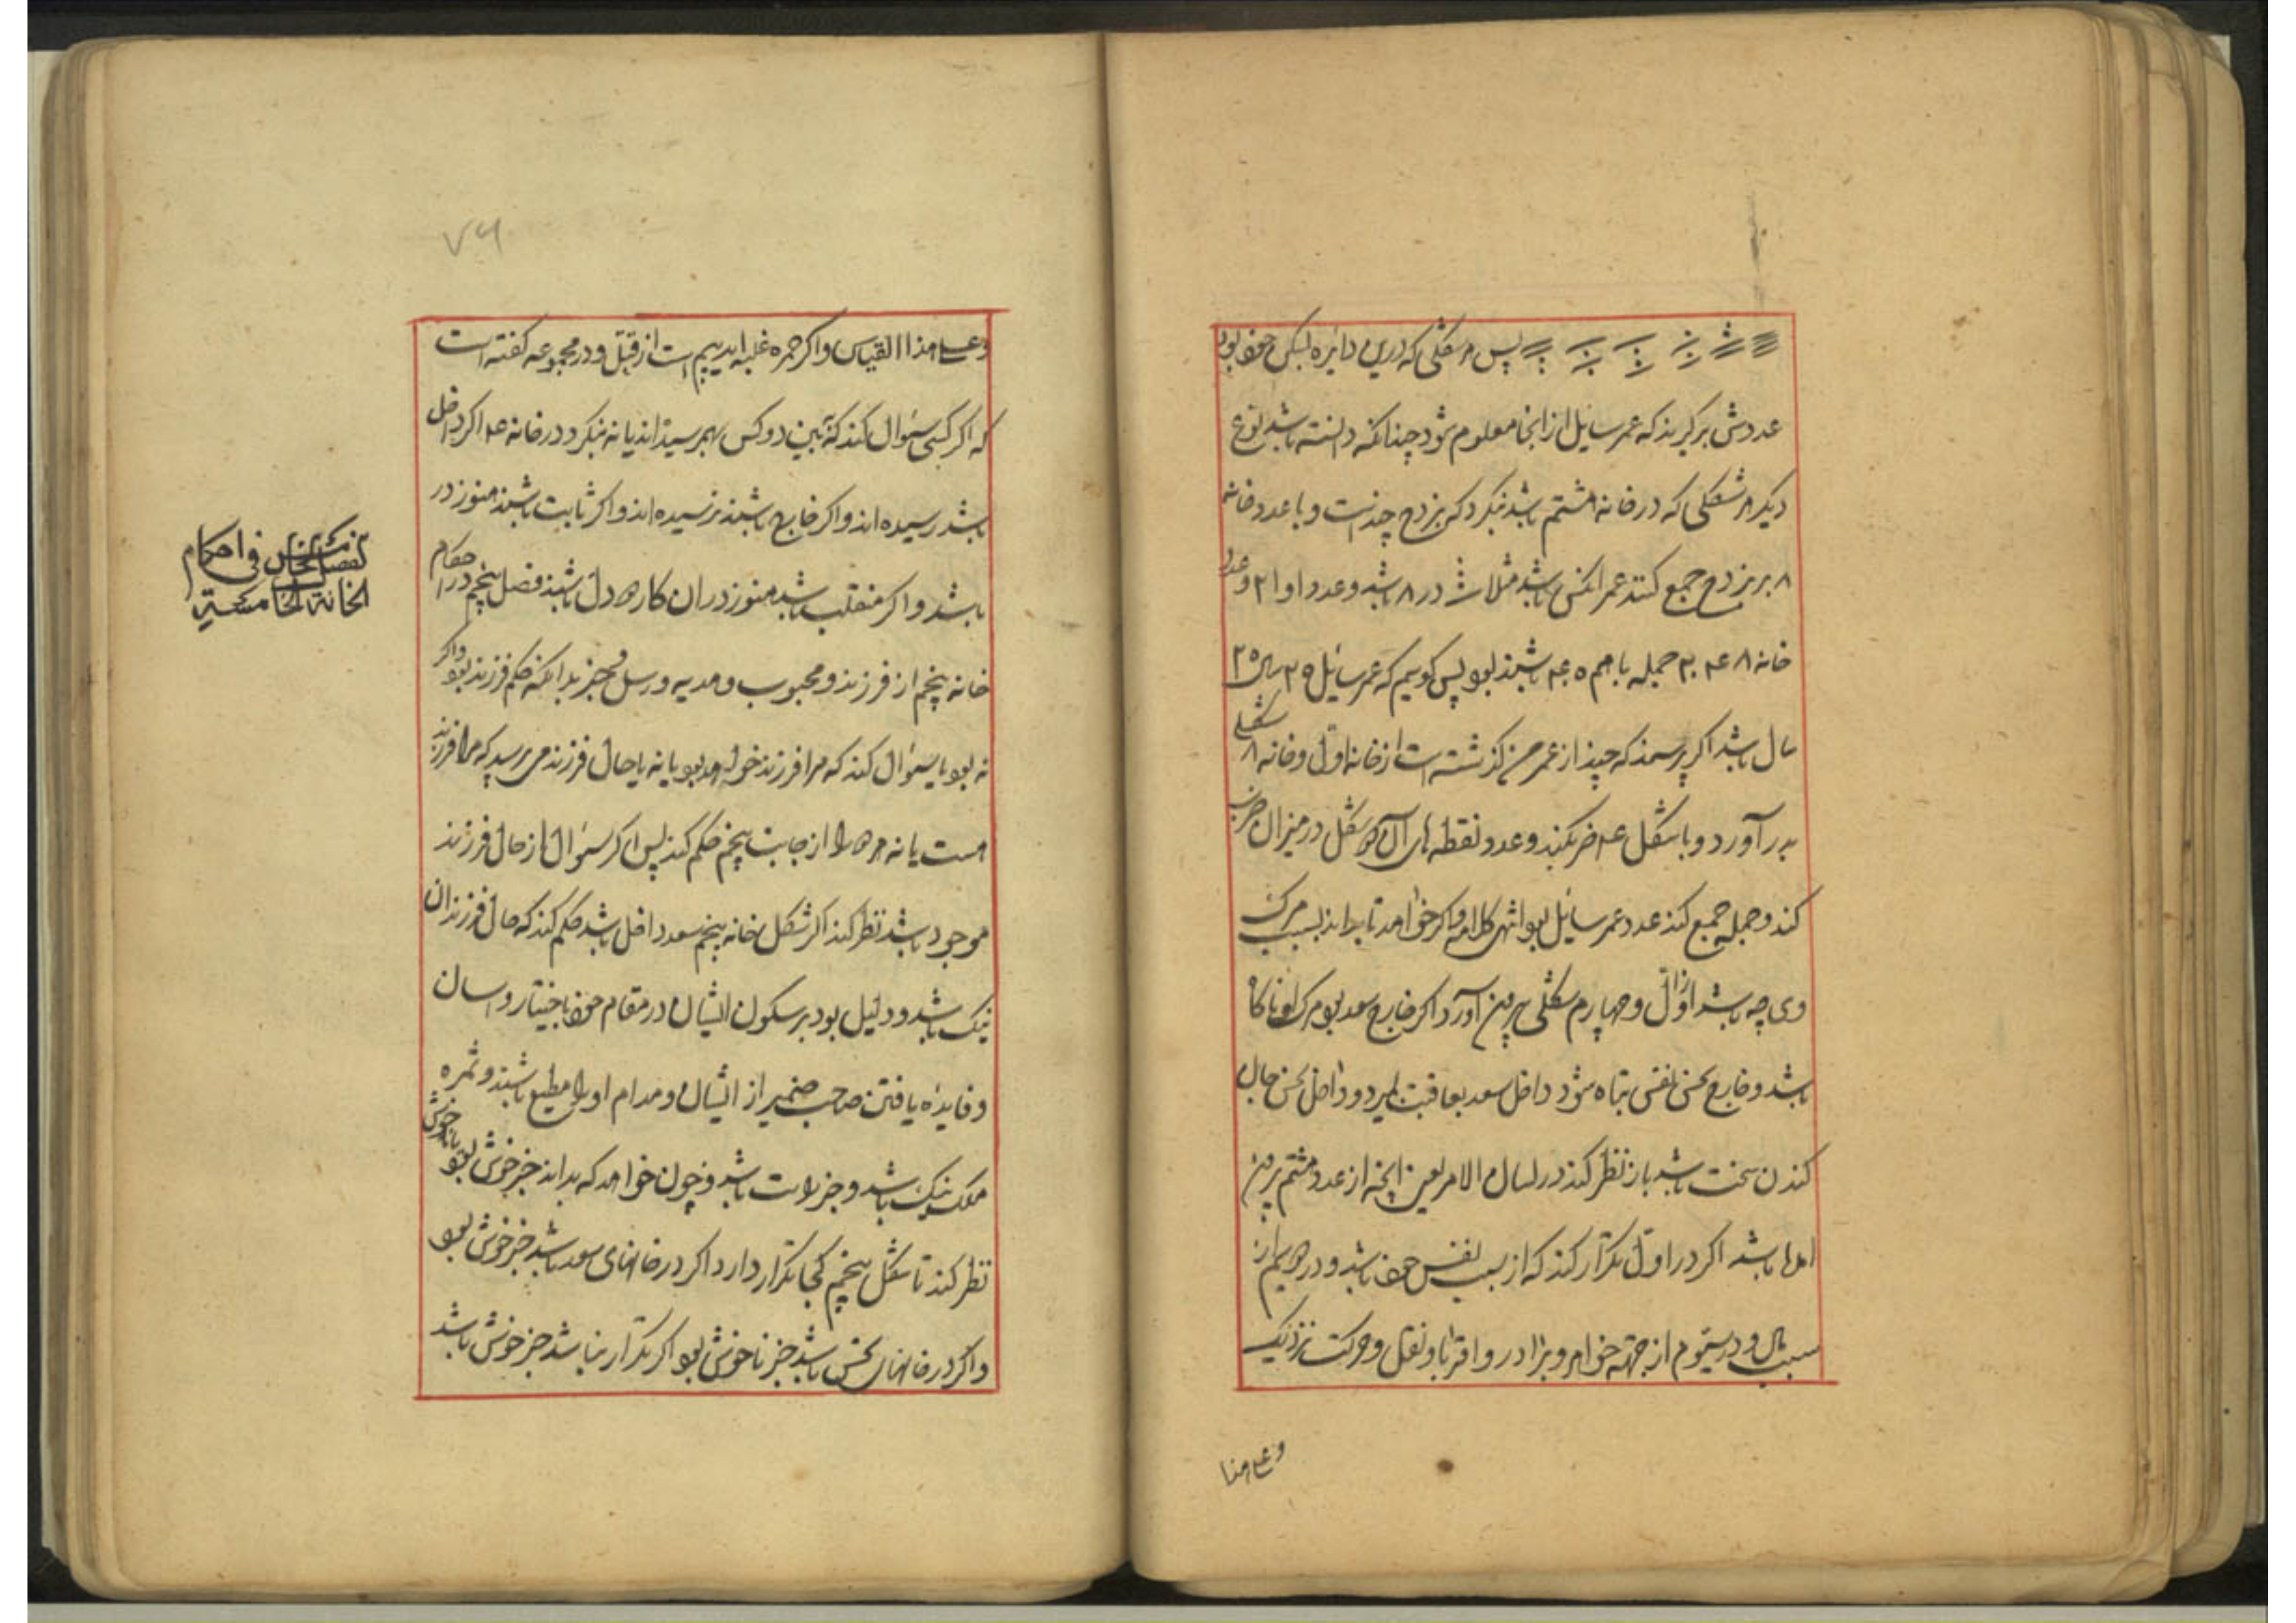 پس هر شکلی که درین دایره بسکن خود بود
عددش برگیرند که عمر سایل از انجا معلوم شود چنانکه دانسته باشد نوع
دیکر هر شکلی که در خانه هشتم باشد بنکرد که بزدح چندست و با عدد خانه
۸ بر بزدح جمع کنند عمر انکس باشد مثلا در ۸ باشد و عدد او ۲۱ و عدد
خانه ۸ جمله با هم باشند بود پس کوییم که عمر سایل سال
سال باشد اکر پرسند که چند از عمر من کذشته است از خانه اول و خانه ۸ شکلی
بدر آورد و با شکل ضرب کند و عدد نقطه های آن شکل در میزان ضرب
کند و جمله جمع کند عدد عمر سایل بود انتهی کلامه و اکر خواهد تا بداند بسبب مرک
وی چه باشد از اول و چهارم شکلی بیرون آورد اکر خارج سعد بود مرک او ناکاه
باشد و خارج نحس بنفس تباه شود داخل سعد بعافیت میرد و داخل نحس جان
کندن سخت باشد باز نظر کند در لسان الامر یعنی انچه از عدد هشتم بیرون
امده باشد اکر در اول تکرار کند که از سبب نفس خود باشد و در دویم از
سبب مال و در سیوم از جهة خواهر و برادر و اقربا و نقل و حرکت نزدیک
و علی هذا
۷۶
و علی هذا القیاس و اکر حمره غلبه اید بیم است از قتل و در مجموعه کفته است
که اکر کسی سئوال کند که این دو کس بهم رسیده اند یا نه بنکرد در خانه اکر داخل
باشد رسیده اند و اکر خارج باشند نرسیده اند و اکر ثابت باشند هنوز در
باشد و اکر منقلب باشد هنوز در ان کار دو دل باشند فصل پنجم در احکام
خانه پنجم از فرزند و محبوب و هدیه و رسل و خبر بدانکه حکم فرزند بود و اکر
نه بود یا سئوال کند که مرا فرزند خواهد بود یا نه یا حال فرزند می پرسد که مرا فرزند
هست یا نه هر دو را از جانب پنجم حکم کند پس اکر سئوال از حال فرزند
موجود باشد نظر کند اکر شکل خانه پنجم سعد داخل باشد حکم کند که حال فرزندان
نیک باشد و دلیل بود بر سکون ایشان در مقام خود باختیار و اسان
و فایده یافتن صاحب ضمیر از ایشان و مدام او را مطیع باشند و ثمره
ملک نیک باشد و خبر راست باشد و چون خواهد که بداند خبر خوش بود یا ناخوش
نظر کند تا شکل پنجم کجا تکرار دارد اکر در خانهای سعد باشد خبر خوش بود
و اکر در خانهای نحس باشد خبر ناخوش بود اکر تکرار نباشد خبر خوش باشد
الفصل الخامس فی احکام
الخانة الخامسة